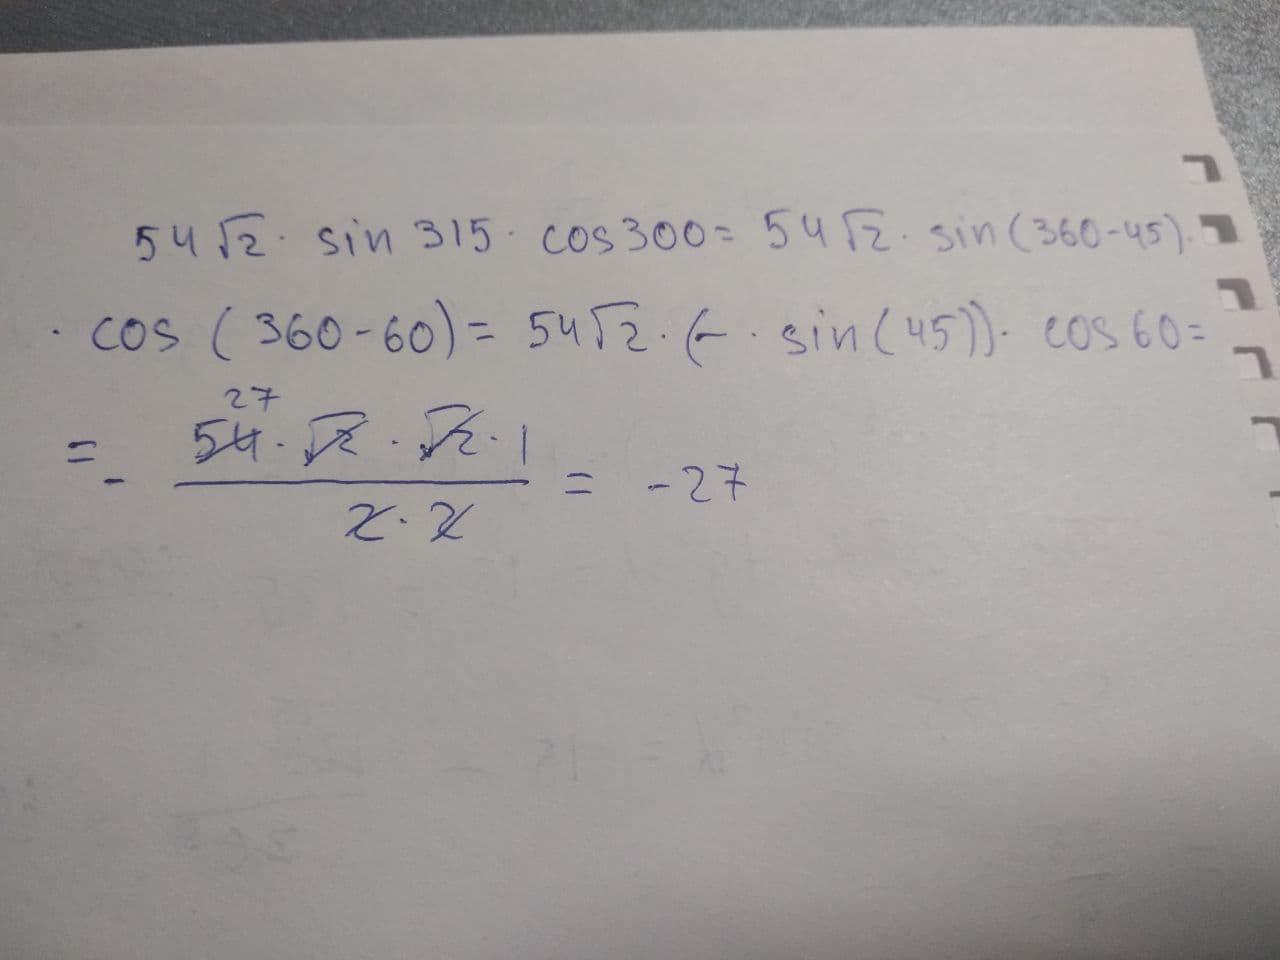 54√2 · sin 315 · cos 300 = 54√2 · sin(360-45) ·
· cos (360-60) = 54√2 · (- · sin(45)) · cos 60 =
27
= - 54 · √2 · √2 · 1 / 2 · 2 = -27